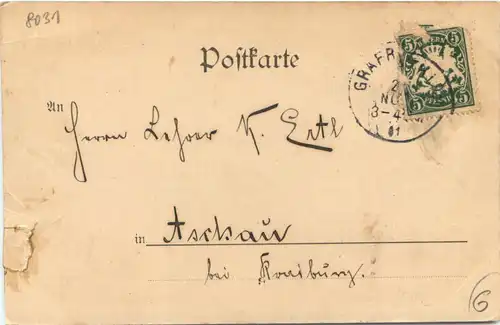 8031
Postkarte
An
Herrn Lehrer K. Ertl
in Aschau
bei Kraiburg.
5 BAYERN 5
5 5
GRAFR
2
NO
3-4
01
6